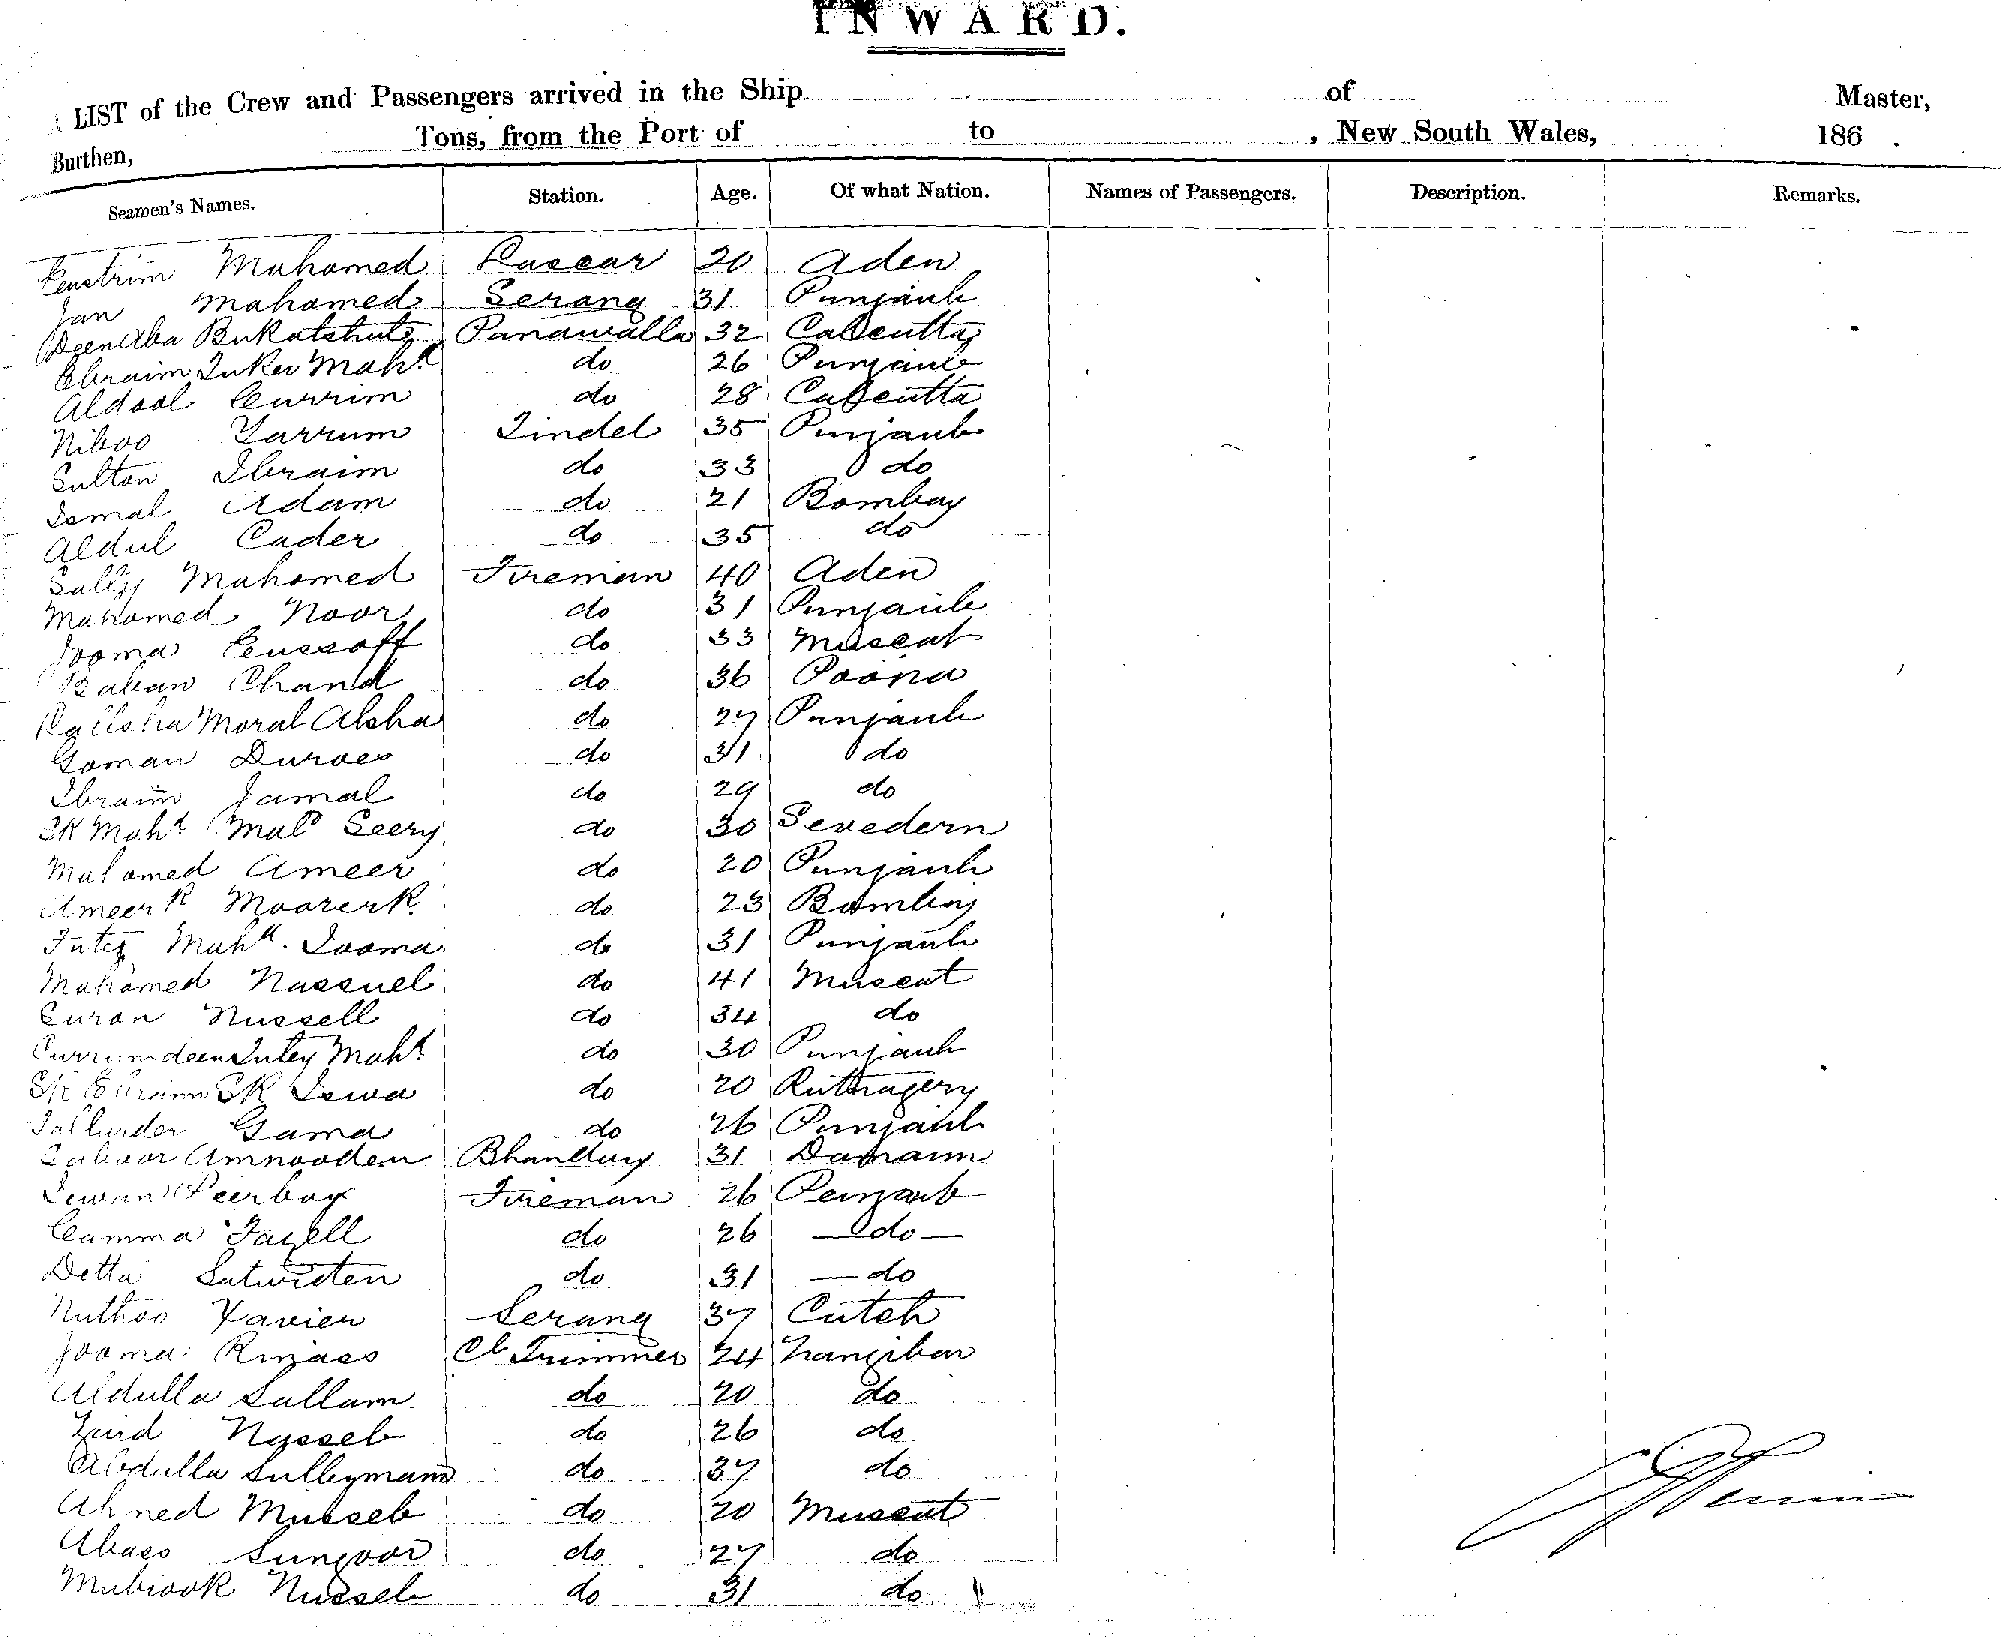 INWARD.
LIST of the Crew and Passengers arrived in the Ship of Master,
Burthen, Tons, from the Port of to , New South Wales, 186 .
Seamen's Names. Station. Age. Of what Nation. Names of Passengers. Description. Remarks.
Mahomed Lascar 20 Aden
Jan Mahomed Serang 31 Punjaub
Panawalla 32 Calcutta
Ebraim Maht do 26 Punjaub
Currim do 28 Calcutta
Niboo Yarrum Tindel 35 Punjaub
Sulton Ibraim do 33 do
Ismal Adam do 21 Bombay
Aldul Cader do 35 do
Sally Mahomed Fireman 40 Aden
Mahomed Noor do 31 Punjaub
Jooma Eussoff do 33 Muscat
Baban Chand do 36 Poona
Moral Alsha do 27 Punjaub
Goman Duroes do 31 do
Ibraim Jamal do 29 do
SK Maht Seery do 30
Mahomed Ameer do 20 Punjaub
Ameer K Moorer K do 23 Bombay
Maht Jooma do 31 Punjaub
Mahomed Nassuel do 41 Muscat
Suron Nussell do 34 do
Currumdeen Maht do 30 Punjaub
SK Ebraim SK Iswa do 20 Ruttnagery
Gama do 26 Punjaub
Amnooden Bhandary 31 Damaun
Peerbox Fireman 26 Punjaub
Camma Fazell do 26 — do —
Detta do 31 — do
Nuthoo Xavier Serang 37 Cutch
Jooma Cl Trimmer 24 Zanzibar
Aldulla Sallam do 20 do
Zaid Nasseb do 26 do
Abdulla Sulleyman do 37 do
Ahmed Musseb do 20 Muscat
Abass Sungoor do 27 do
Mubrook Nusseb do 31 do